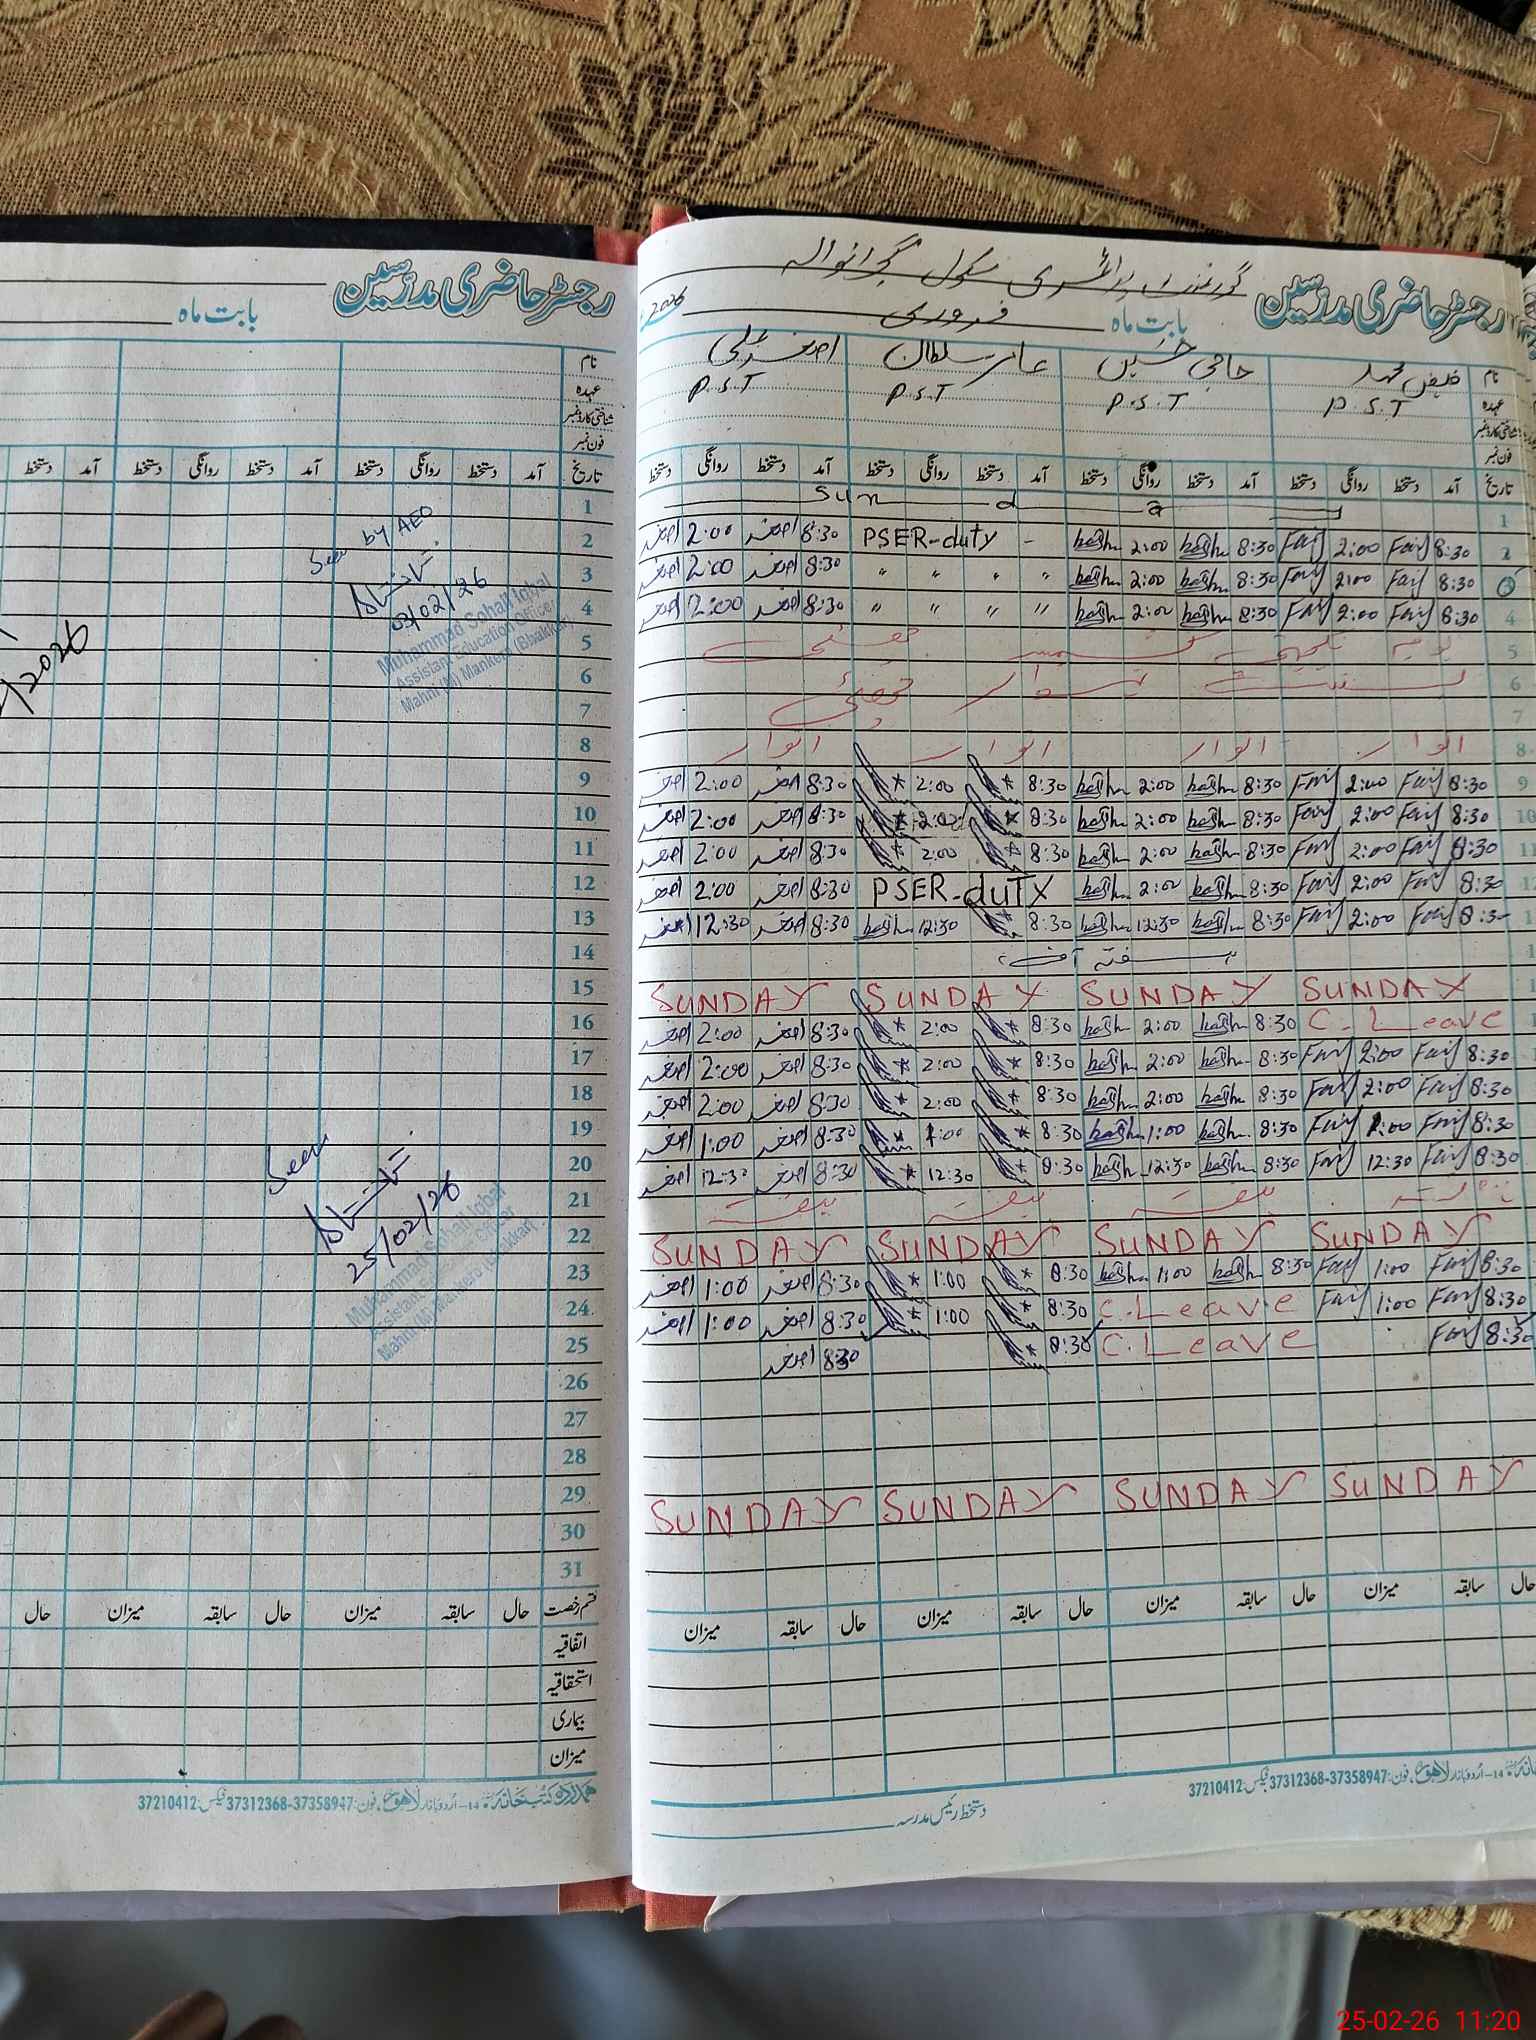 رجسٹر حاضری مدرسین
بابت ماہ
نام
عہدہ
شناختی کارڈ نمبر
فون نمبر
دستخط آمد دستخط روانگی دستخط آمد دستخط روانگی دستخط آمد تاریخ
1
2
3
4
5
6
7
8
9
10
11
12
13
14
15
16
17
18
19
20
21
22
23
24
25
26
27
28
29
30
31
Seen by AEO
03/02/26
Muhammad Sohail Iqbal
Assistant Education Officer
Mahni (M) Mankera (Bhakkar)
/2026
Seen
25/02/26
Muhammad Sohail Iqbal
Assistant Education Officer
Mahni (M) Mankera (Bhakkar)
قسم رخصت حال سابقہ میزان حال سابقہ میزان حال
اتفاقیہ
استحقاقیہ
بیماری
میزان
37210412 :فیکس 37312368-37358947 :فون
رجسٹر حاضری مدرسین گورنمنٹ پرائمری سکول
بابت ماہ فروری 2026
نام فیض محمد حاجی حسین عامر سلطان اصغر علی
عہدہ P.S.T P.S.T P.S.T P.S.T
شناختی کارڈ نمبر
فون نمبر
تاریخ آمد دستخط روانگی دستخط آمد دستخط روانگی دستخط آمد دستخط روانگی دستخط آمد دستخط روانگی دستخط
1 Sun d a y
اصغر 2:00 اصغر 8:30 PSER-duty - 2:00 8:30 Faiz 2:00 Faiz 8:30 2
اصغر 2:00 اصغر 8:30 " " " " 2:00 8:30 Faiz 2:00 Faiz 8:30 3
اصغر 2:00 اصغر 8:30 " " " " 2:00 8:30 Faiz 2:00 Faiz 8:30 4
یوم یکجہتی کشمیر 5
6
7
اتوار اتوار اتوار اتوار 8
اصغر 2:00 اصغر 8:30 2:00 8:30 2:00 8:30 Faiz 2:00 Faiz 8:30 9
اصغر 2:00 اصغر 8:30 2:00 8:30 2:00 8:30 Faiz 2:00 Faiz 8:30 10
اصغر 2:00 اصغر 8:30 2:00 8:30 2:00 8:30 Faiz 2:00 Faiz 8:30 11
اصغر 2:00 اصغر 8:30 PSER-duTX 2:00 8:30 Faiz 2:00 Faiz 8:30
اصغر 12:30 اصغر 8:30 12:30 8:30 12:30 8:30 Faiz 2:00 Faiz 8:30
ہفتہ
SUNDAY SUNDAY SUNDAY SUNDAY
اصغر 2:00 اصغر 8:30 2:00 8:30 2:00 8:30 C. Leave
اصغر 2:00 اصغر 8:30 2:00 8:30 2:00 8:30 Faiz 2:00 Faiz 8:30
اصغر 2:00 اصغر 8:30 2:00 8:30 2:00 8:30 Faiz 2:00 Faiz 8:30
اصغر 1:00 اصغر 8:30 1:00 8:30 1:00 8:30 Faiz 1:00 Faiz 8:30
اصغر 12:30 اصغر 8:30 12:30 8:30 12:30 8:30 Faiz 12:30 Faiz 8:30
ہفتہ ہفتہ ہفتہ ہفتہ
SUNDAY SUNDAY SUNDAY SUNDAY
اصغر 1:00 اصغر 8:30 1:00 8:30 1:00 8:30 Faiz 1:00 Faiz 8:30
اصغر 1:00 اصغر 8:30 1:00 8:30 C. Leave Faiz 1:00 Faiz 8:30
اصغر 8:30 8:30 C. Leave Faiz 8:30
SUNDAY SUNDAY SUNDAY SUNDAY
حال سابقہ میزان حال سابقہ میزان حال سابقہ میزان حال سابقہ میزان
37210412 :فیکس 37312368-37358947 :فون
دستخط رئیس مدرسہ
25-02-26 11:20